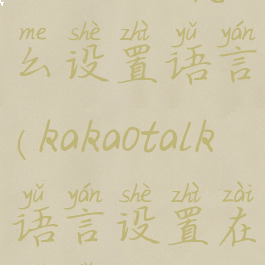 me shè zhì yǔ yán
么设置语言
(kakaotalk
yǔ yán shè zhì zài
语言设置在